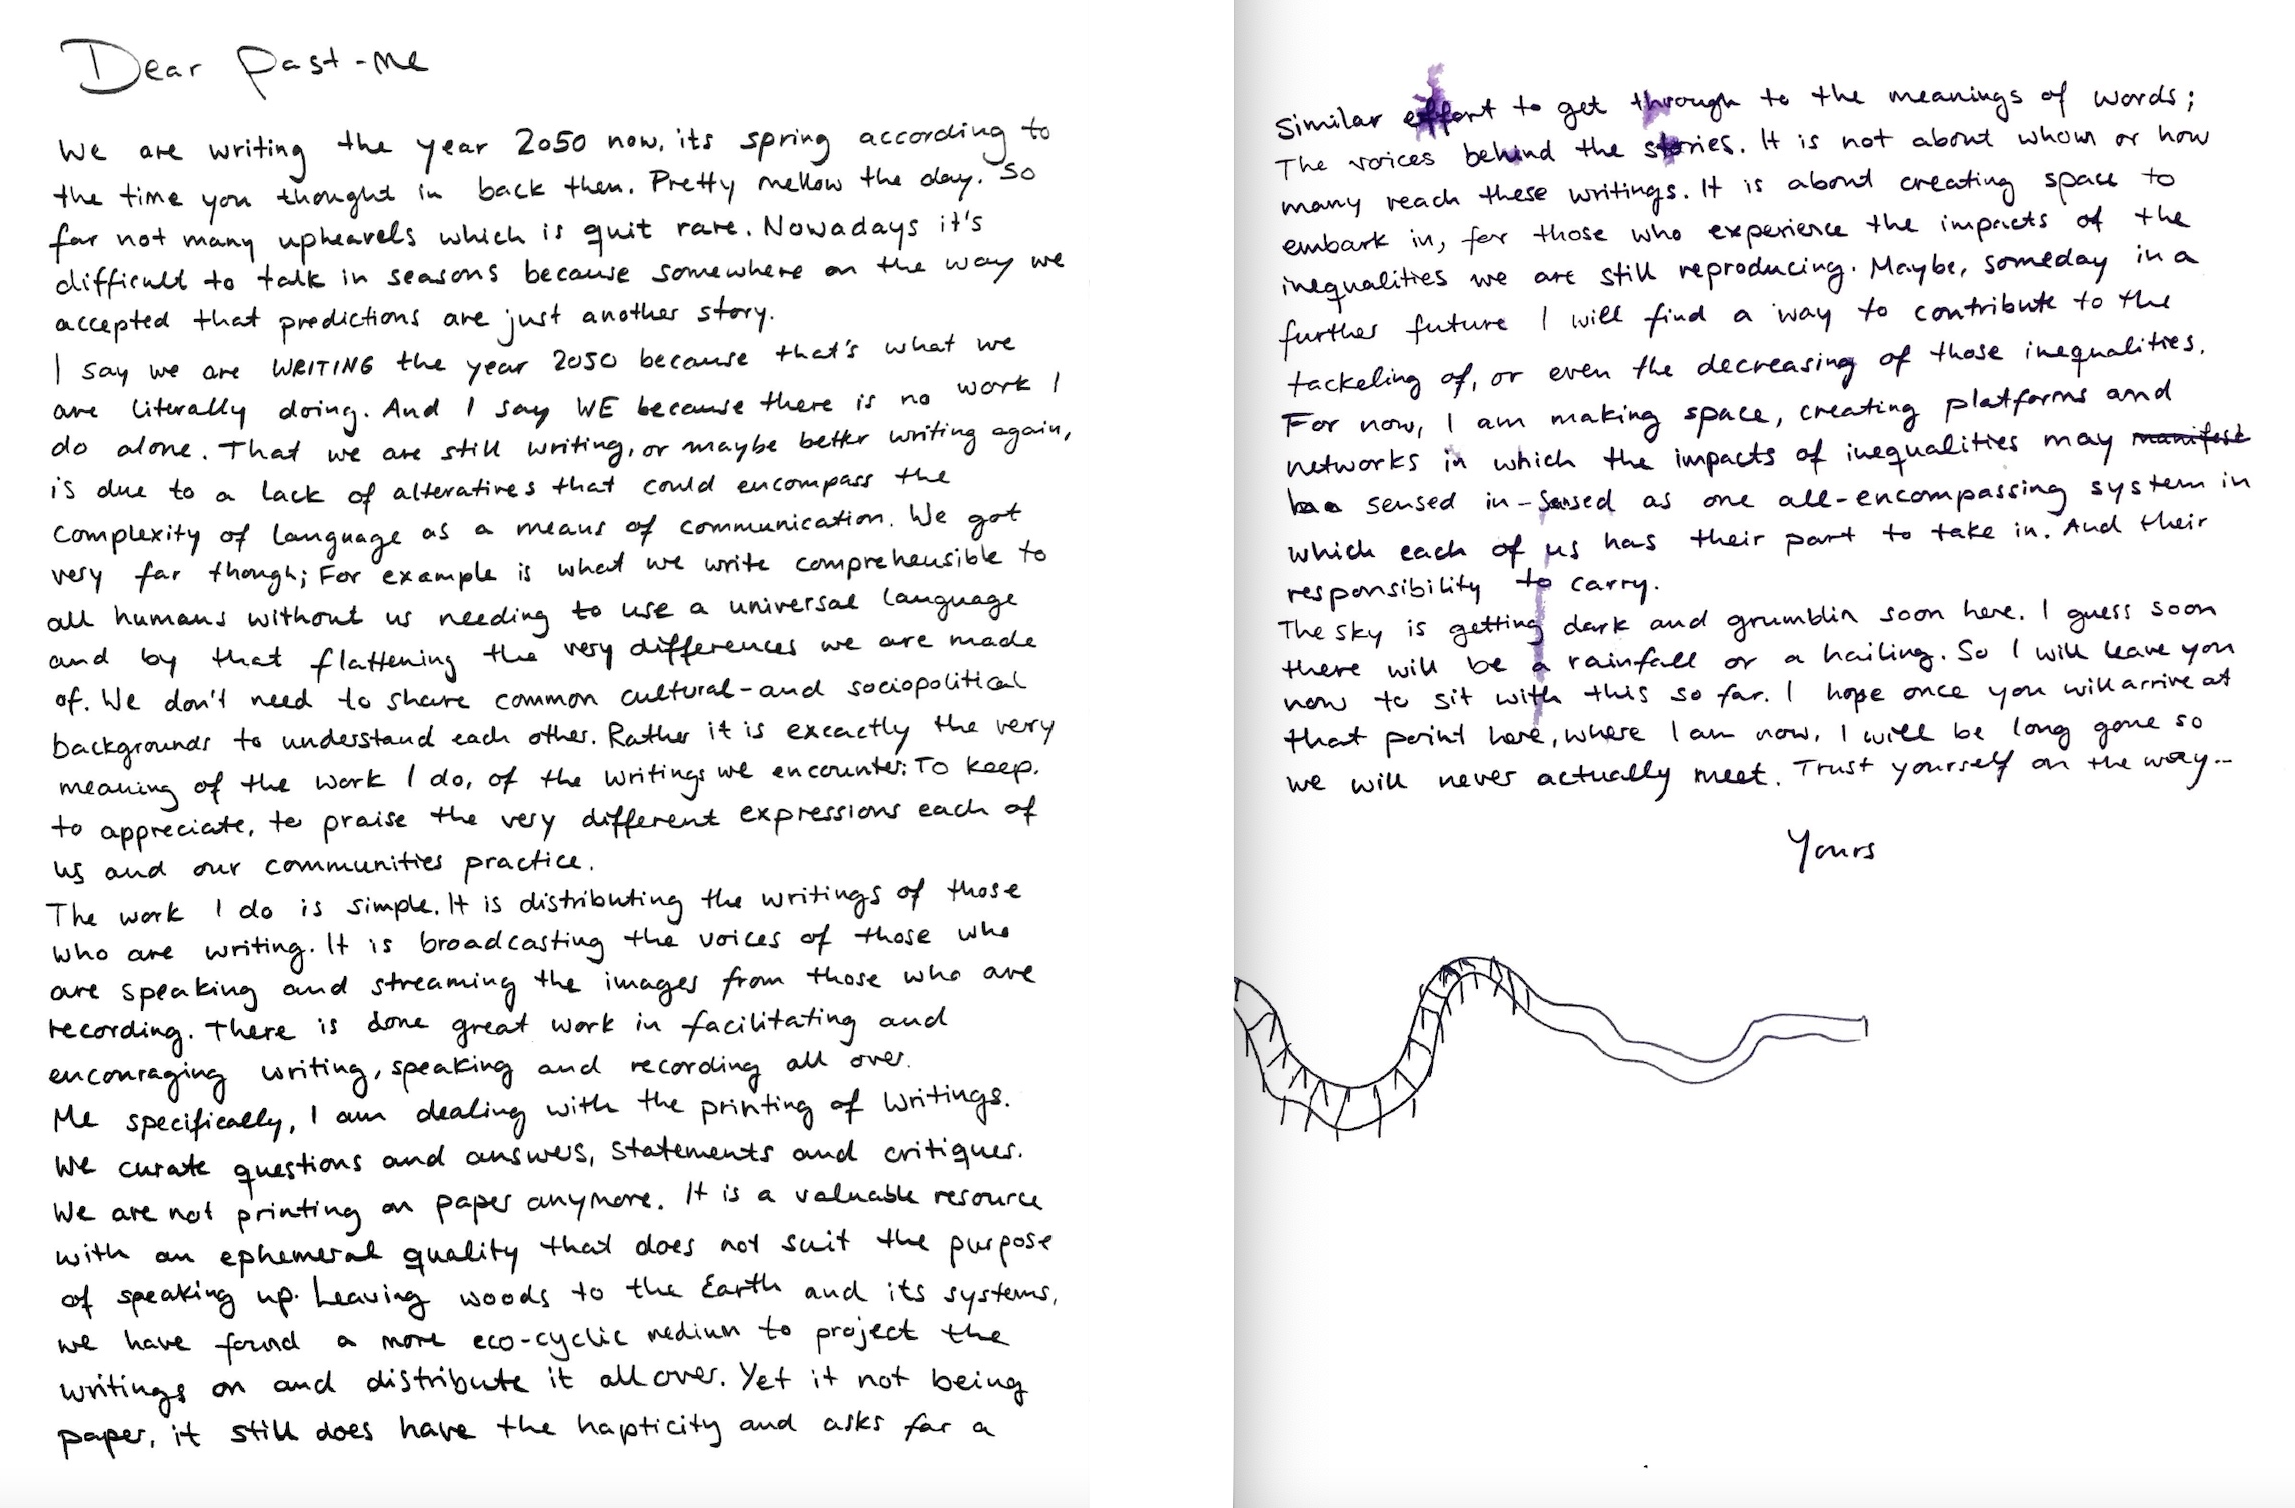 Dear Past-me
We are writing the year 2050 now, its spring according to
the time you thought in back then. Pretty mellow the day. So
far not many uphearels which is quit rare. Nowadays it's
difficult to talk in seasons because somewhere on the way we
accepted that predictions are just another story.
I say we are WRITING the year 2050 because that's what we
are literally doing. And I say WE because there is no work I
do alone. That we are still writing, or maybe better writing again,
is due to a lack of alteratives that could encompass the
complexity of language as a means of communication. We got
very far though; For example is what we write comprehensible to
all humans without us needing to use a universal language
and by that flattening the very differences we are made
of. We don't need to share common cultural-and sociopolitical
backgrounds to understand each other. Rather it is excactly the very
meaning of the work I do, of the writings we encounter: To keep.
to appreciate, to praise the very different expressions each of
us and our communities practice.
The work I do is simple. It is distributing the writings of those
who are writing. It is broadcasting the voices of those who
are speaking and streaming the images from those who are
recording. There is done great work in facilitating and
encouraging writing, speaking and recording all over.
Me specifically, I am dealing with the printing of writings.
We curate questions and answers, statements and critiques.
We are not printing on paper anymore. It is a valuable resource
with an ephemeral quality that does not suit the purpose
of speaking up. Leaving woods to the Earth and its systems,
we have found a more eco-cyclic medium to project the
writings on and distribute it all over. Yet it not being
paper, it still does have the hapticity and asks for a
Similar effort to get through to the meanings of words;
The voices behind the stories. It is not about whom or how
many reach these writings. It is about creating space to
embark in, for those who experience the impacts of the
inequalities we are still reproducing. Maybe, someday in a
further future I will find a way to contribute to the
tackeling of, or even the decreasing of those inequalities.
For now, I am making space, creating platforms and
networks in which the impacts of inequalities may manifest
sensed in-sensed as one all-encompassing system in
which each of us has their part to take in. And their
responsibility to carry.
The sky is getting dark and grumblin soon here. I guess soon
there will be a rainfall or a hailing. So I will leave you
now to sit with this so far. I hope once you will arrive at
that point here, where I am now, I will be long gone so
we will never actually meet. Trust yourself on the way...
Yours